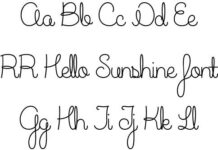 Aa Bb Cc Dd Ee
RR Hello Sunshine font
Gg Hh Ii Jj Kk Ll